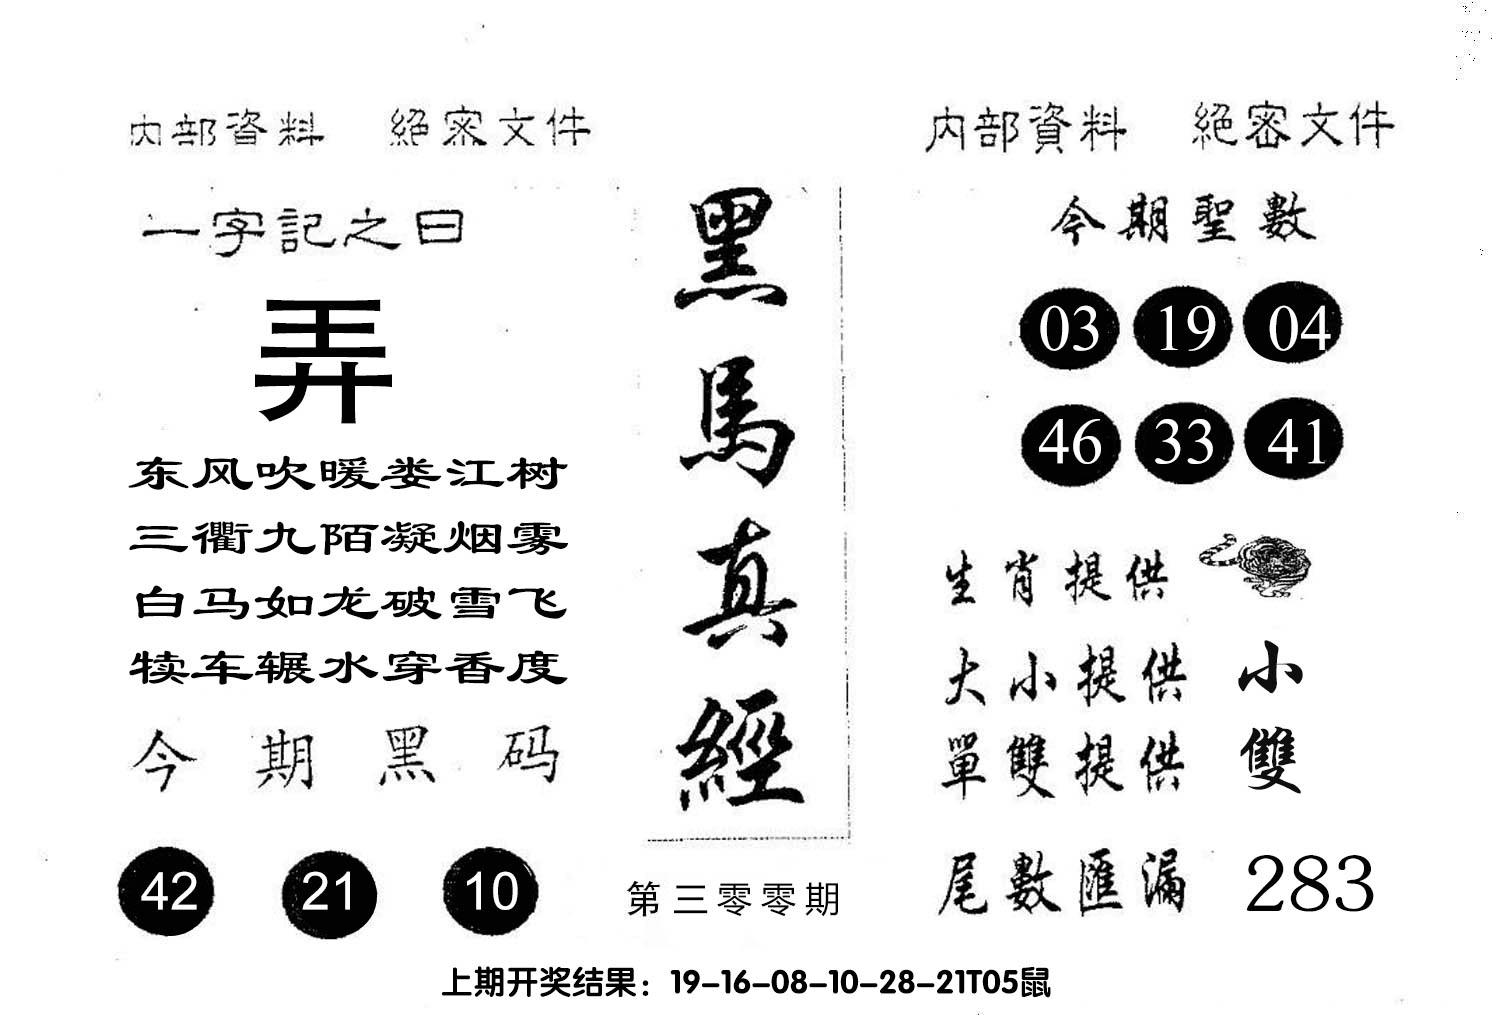 内部資料 絕密文件
一字記之曰
弄
东风吹暖娄江树
三衢九陌凝烟雾
白马如龙破雪飞
犊车辗水穿香度
今期黑码
42 21 10
黑馬真經
第三零零期
内部資料 絕密文件
今期聖數
03 19 04
46 33 41
生肖提供
大小提供 小
單雙提供 雙
尾數匯漏 283
上期开奖结果：19-16-08-10-28-21T05鼠